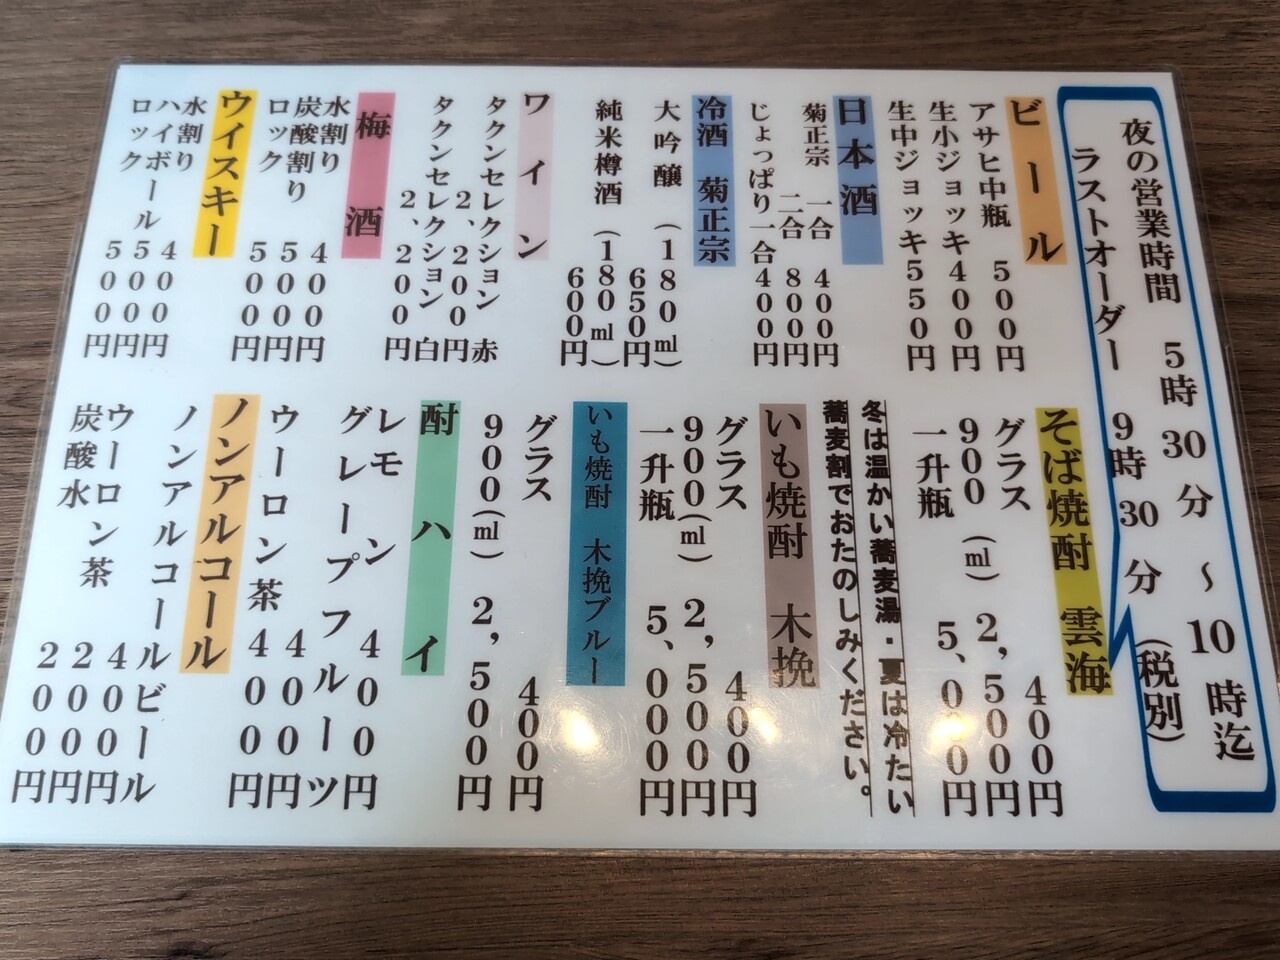 夜の営業時間 5時30分～10時迄
ラストオーダー 9時30分 (税別)
ビール
アサヒ中瓶 500円
生小ジョッキ 400円
生中ジョッキ 550円
日本酒
菊正宗 一合 400円
二合 800円
じょっぱり一合 400円
冷酒 菊正宗
大吟醸 (180ml) 650円
純米樽酒 (180ml) 600円
ワイン
タクンセレクション 赤 2,200円
タクンセレクション 白 2,200円
梅酒
水割り 400円
炭酸割り 500円
ロック 500円
ウイスキー
水割り 400円
ハイボール 500円
ロック 500円
そば焼酎 雲海
グラス 400円
900(ml) 2,500円
一升瓶 5、000円
冬は温かい蕎麦湯・夏は冷たい
蕎麦割でおたのしみください。
いも焼酎 木挽
グラス 400円
900(ml) 2,500円
一升瓶 5、000円
いも焼酎 木挽ブルー
グラス 400円
900(ml) 2,500円
酎ハイ
レモン 400円
グレープフルーツ 400円
ウーロン茶 400円
ノンアルコール
ノンアルコールビール 400円
ウーロン茶 200円
炭酸水 200円